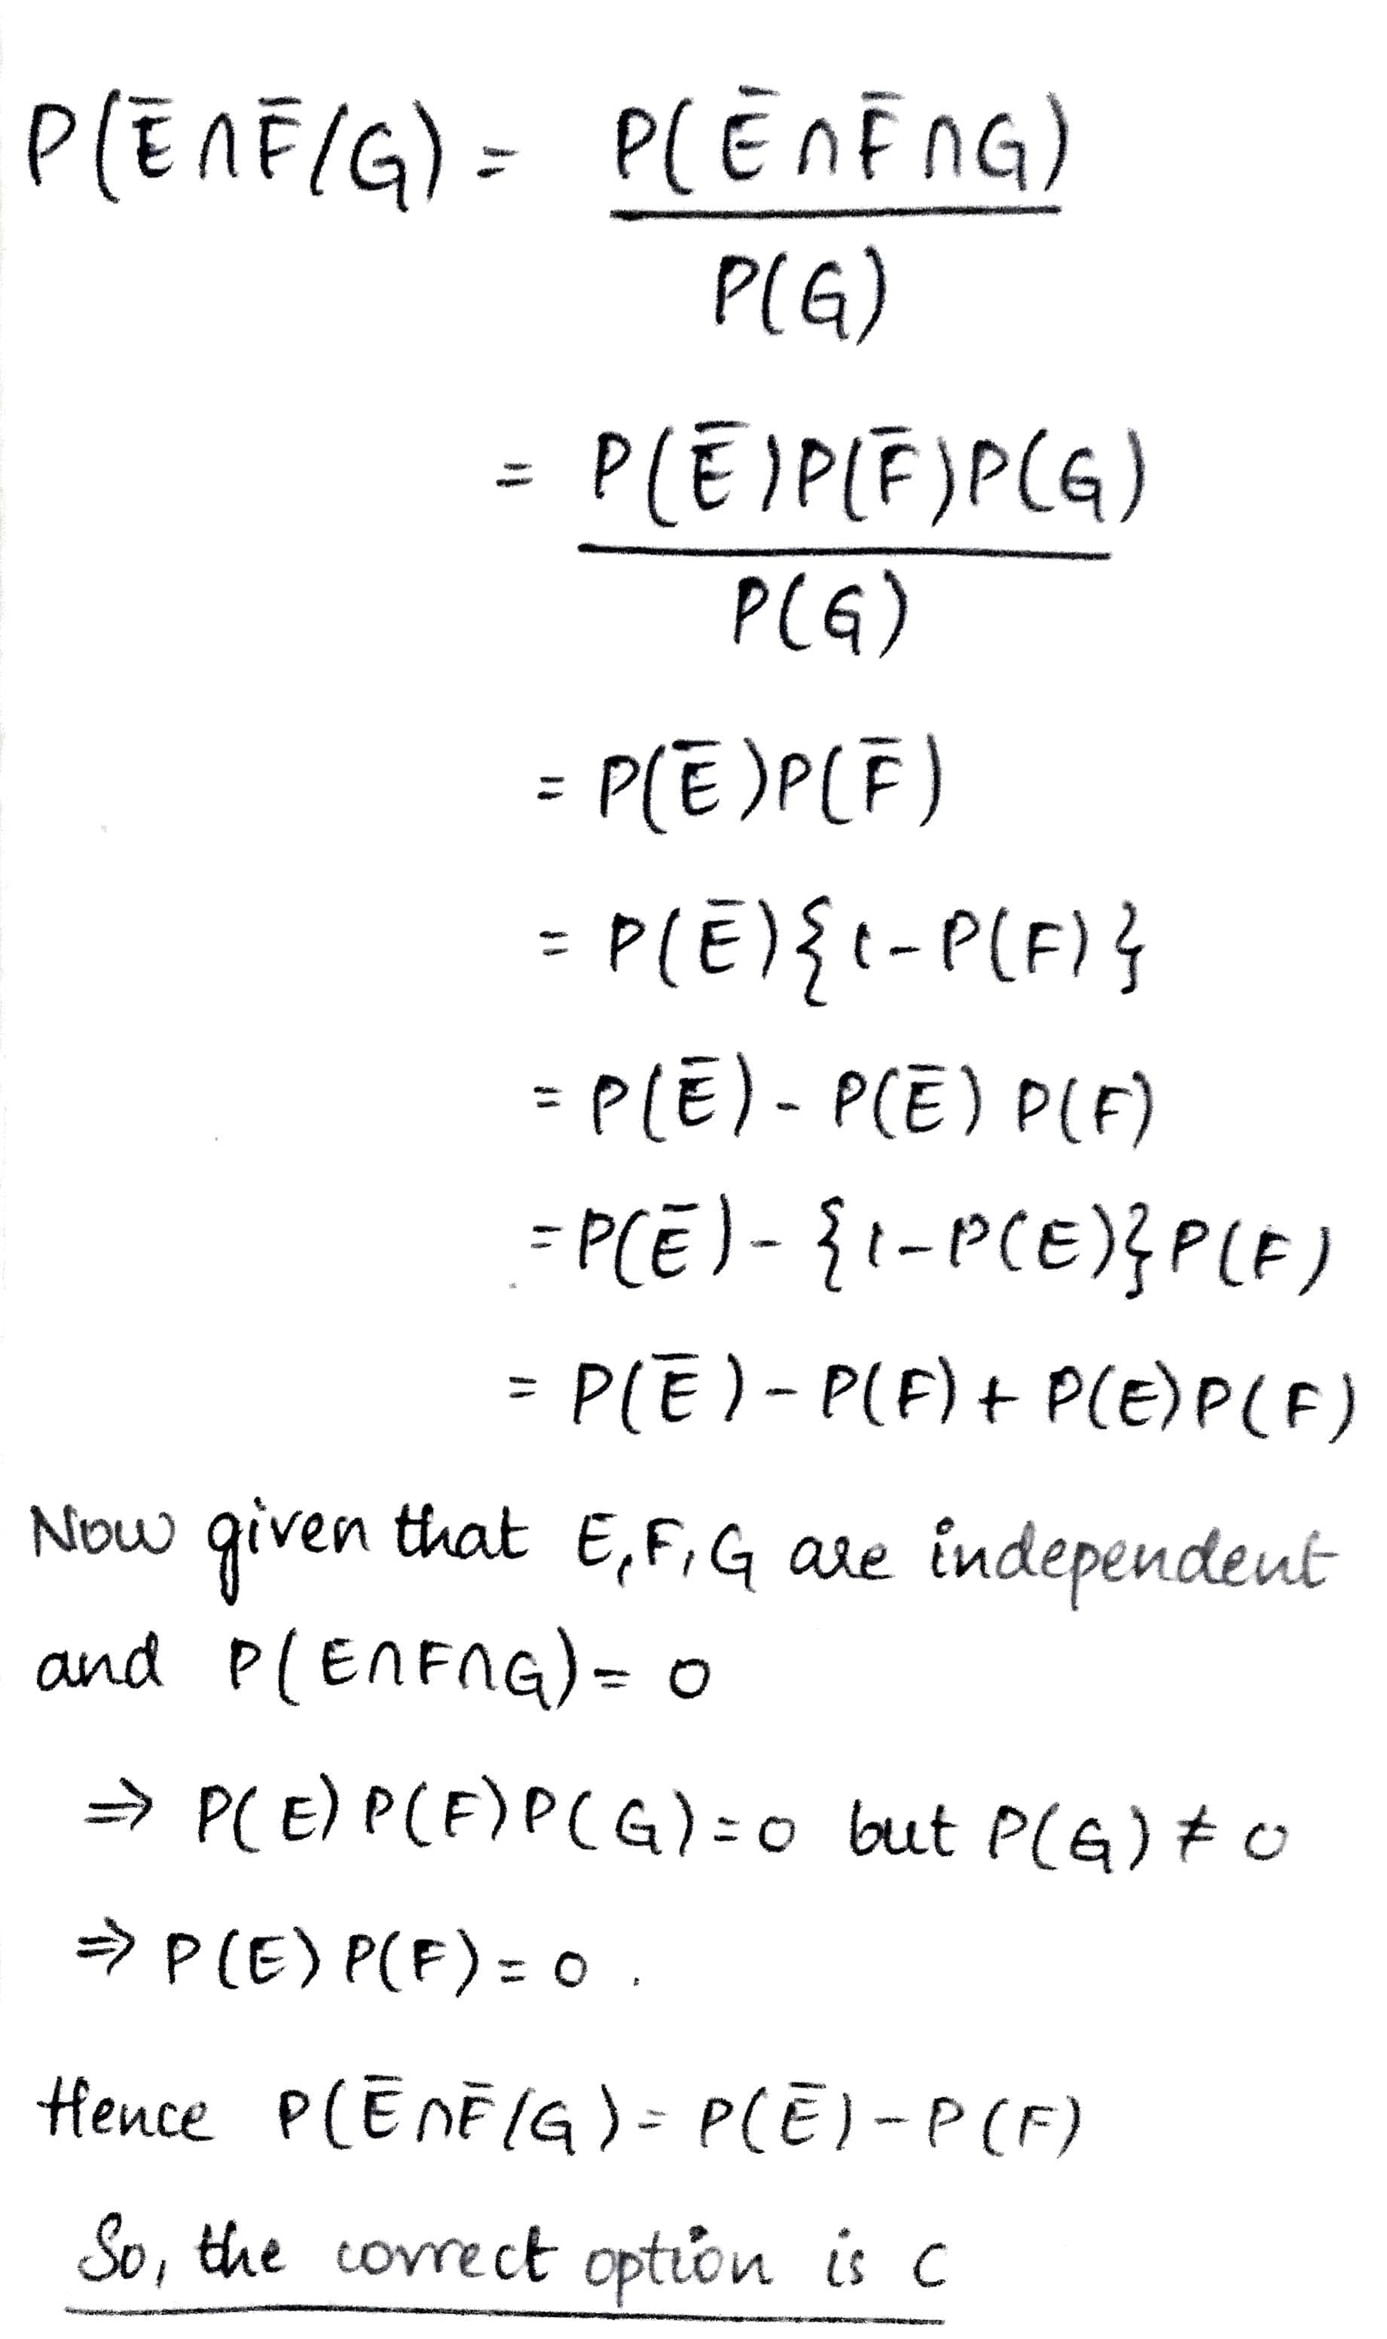 P(Ē∩F̄/G) = P(Ē∩F̄∩G)
P(G)
= P(Ē)P(F̄)P(G)
P(G)
= P(Ē)P(F̄)
= P(Ē){1-P(F)}
= P(Ē) - P(Ē) P(F)
= P(Ē) - {1-P(E)}P(F)
= P(Ē) - P(F) + P(E)P(F)
Now given that E,F,G are independent
and P(E∩F∩G) = 0
⇒ P(E) P(F) P(G) = 0 but P(G) ≠ 0
⇒ P(E) P(F) = 0 .
Hence P(Ē∩F̄/G) = P(Ē) - P(F)
So, the correct option is C